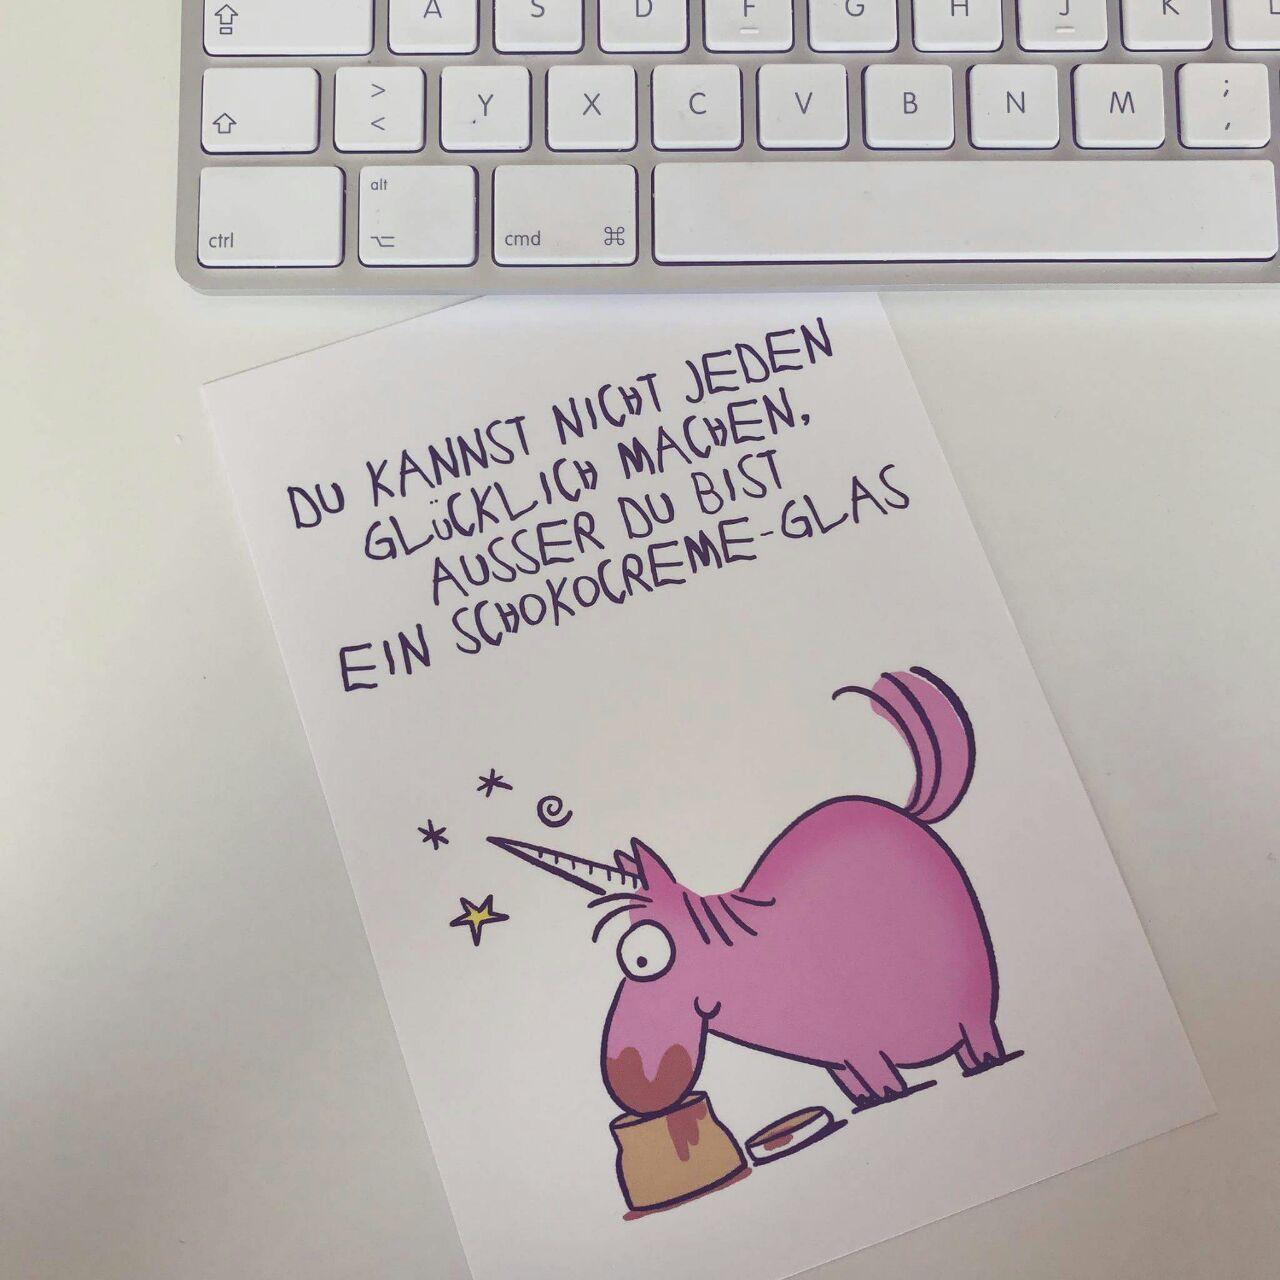 A S D F G H J K L
> < Y X C V B N M ; ,
alt
ctrl cmd ⌘
DU KANNST NICHT JEDEN
GLÜCKLICH MACHEN,
AUSSER DU BIST
EIN SCHOKOCREME-GLAS